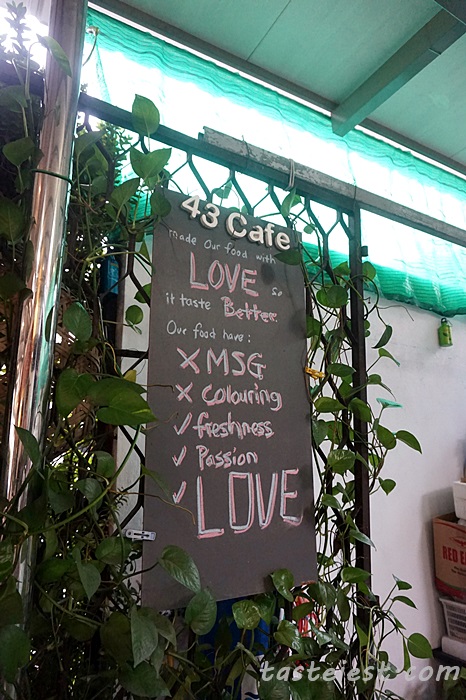 43 Cafe
made Our food with
LOVE so
it taste Better
Our food have:
X MSG
X Colouring
✓ freshness
✓ Passion
✓ LOVE
RED
tastefest.com